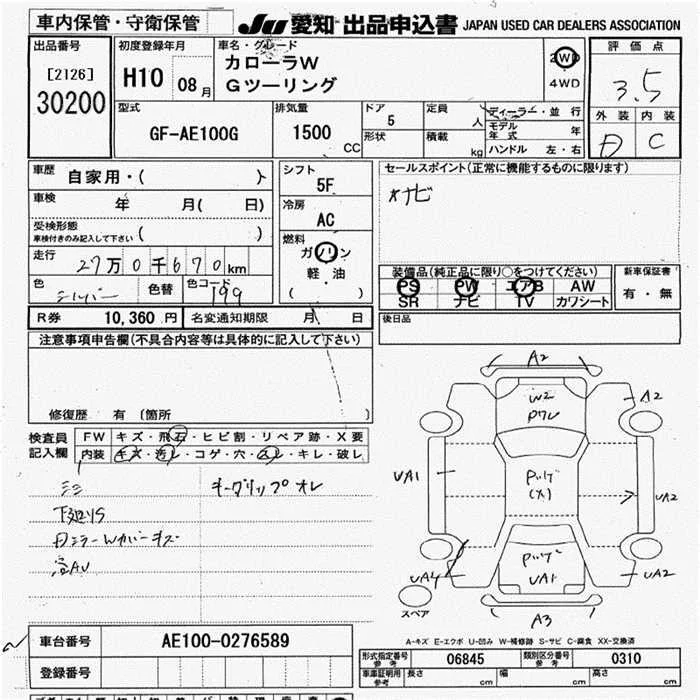 車内保管・守衛保管 JU 愛知 出品申込書 JAPAN USED CAR DEALERS ASSOCIATION
出品番号 初度登録年月 車名・グレード 評価点
[2126] H10 08月 カローラW 2WD 3.5
30200 Gツーリング 4WD
外装 内装
型式 排気量 ドア 5 定員 人 ディーラー・並行
GF-AE100G 1500 CC 形状 積載 kg モデル年式 年
ハンドル 左・右
D C
車歴 自家用・( ) シフト 5F セールスポイント(正常に機能するものに限ります)
車検 年 月( 日) 冷房 AC ナビ
受検形態
車検付きのみ記入して下さい ( ) 燃料 ガソリン
走行 27万0千670km 軽・油
( )
装備品(純正品に限り○をつけてください) 新車保証書
色 シルバー 色替 色コード 199 PS PW エアB AW 有・無
SR ナビ TV カワシート
R券 10,360円 名変通知期限 月 日 後日品
注意事項申告欄(不具合内容等は具体的に記入して下さい)
修復歴 有 (箇所 )
検査員 FW キズ・飛石・ヒビ割・リペア跡・X要
記入欄 内装 キズ・汚レ・コゲ・穴・スレ・キレ・破レ
キーグリップオレ
下廻りS
A2
W2
A2
UA1
UA2
UA4
UA1
UA2
A3
スペア
A-キズ E-エクボ U-凹み W-補修跡 S-サビ C-腐食 XX-交換済
車台番号 AE100-0276589
登録番号
形式指定番号 参考 06845 類別区分番号 参考 0310
車庫証明用 参考 長さ cm 幅 cm 高さ cm